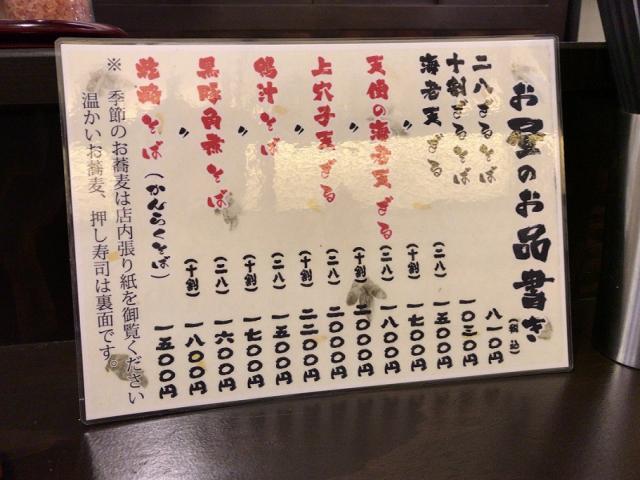 お昼のお品書き
(税込)
二八ざるそば 八一〇円
十割ざるそば 一〇三〇円
海老天ざる (二八) 一五〇〇円
〃 (十割) 一七〇〇円
天使の海老天ざる (二八) 一八〇〇円
〃 (十割) 二〇〇〇円
上穴子天ざる (二八) 二〇〇〇円
〃 (十割) 二二〇〇円
鴨汁そば (二八) 一五〇〇円
〃 (十割) 一七〇〇円
黒豚角煮そば 一六〇〇円
〃 (十割) 一八〇〇円
乾酪そば (かんらくそば) 一五〇〇円
※ 季節のお蕎麦は店内張り紙を御覧ください
温かいお蕎麦、押し寿司は裏面です。